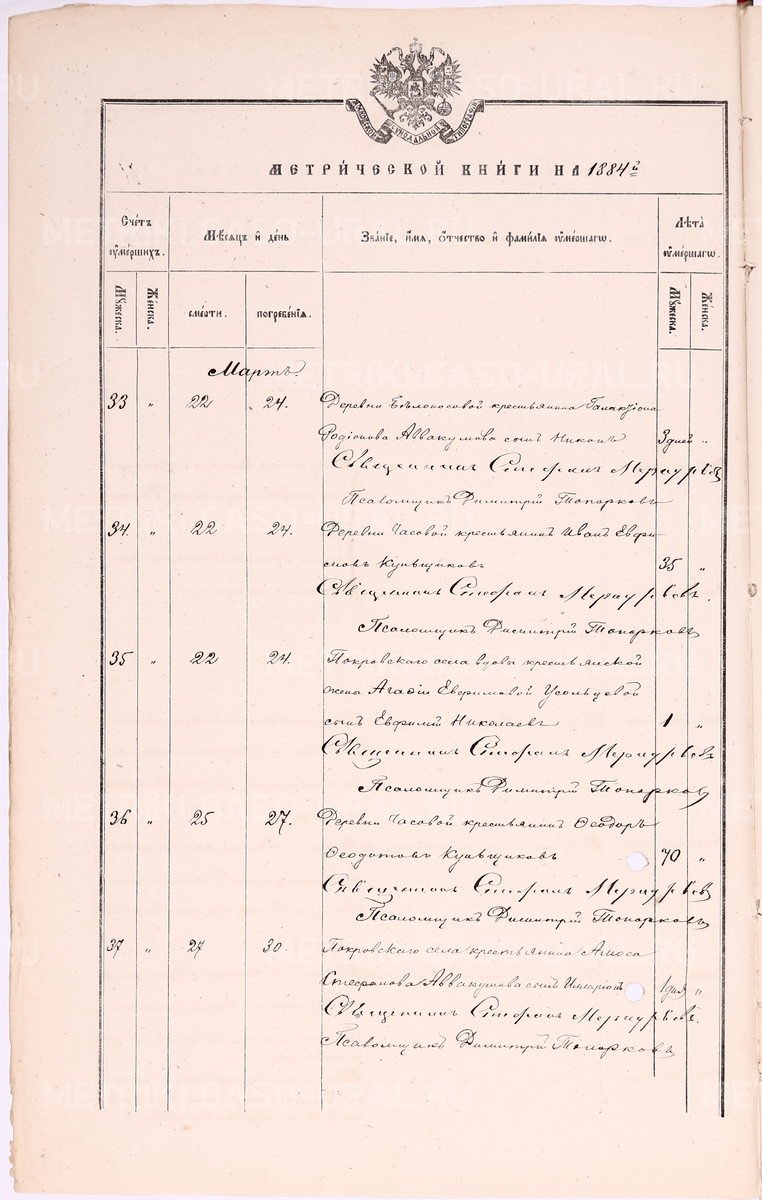 МЕТРИ́ЧЕСКОЙ КНИ́ГИ НА 1884 г.
Счётъ ᲂу҆ме́ршихъ.
Мѣсяцъ и҆ де́нь
Зва́нїе, и҆́мя, ѻ҆́тчество и҆ фами́лїя ᲂу҆ме́ршагѡ.
Лѣ́та ᲂу҆ме́ршагѡ.
Мꙋ́жеска.
Же́нска.
сме́рти.
погребе́нїя.
Мꙋ́жеска.
Же́нска.
Мартъ.
33 " 22 24. Деревни Бѣлоносовой крестьянина Галактіона
Родіонова Аввакумова сынъ Никонъ 3 дней "
Священникъ Стефанъ Меркурьевъ
Псаломщикъ Димитрій Топорковъ
34. " 22 24. Деревни Часовой крестьянинъ Иванъ Евфи-
мовъ Кунщиковъ 35 "
Священникъ Стефанъ Меркурьевъ.
Псаломщикъ Димитрій Топорковъ
35 " 22 24. Покровскаго села вдова крестьянской
жена Агафіи Евфимовой Усольцевой
сынъ Евфимій Николаевъ 1 "
Священникъ Стефанъ Меркурьевъ
Псаломщикъ Димитрій Топорковъ
36 " 25 27. Деревни Часовой крестьянинъ Ѳеодоръ
Ѳеодотовъ Кунщиковъ 70 "
Священникъ Стефанъ Меркурьевъ
Псаломщикъ Димитрій Топорковъ
37 " 27 30. Покровскаго села крестьянина Амоса
Стефанова Аввакумова сынъ 1 дня "
Священникъ Стефанъ Меркурьевъ.
Псаломщикъ Димитрій Топорковъ
METRIKI.GASO-URAL.RU